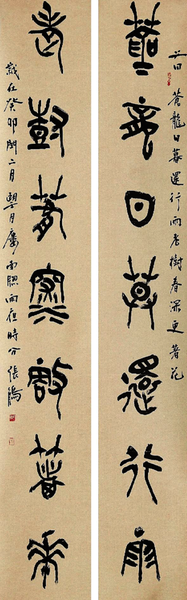 文曰蒼龍日暮還行雨老樹春深更著花
蒼龍日暮還行雨
老樹春深更著花
歲在癸卯閏二月望日 雨 時分張